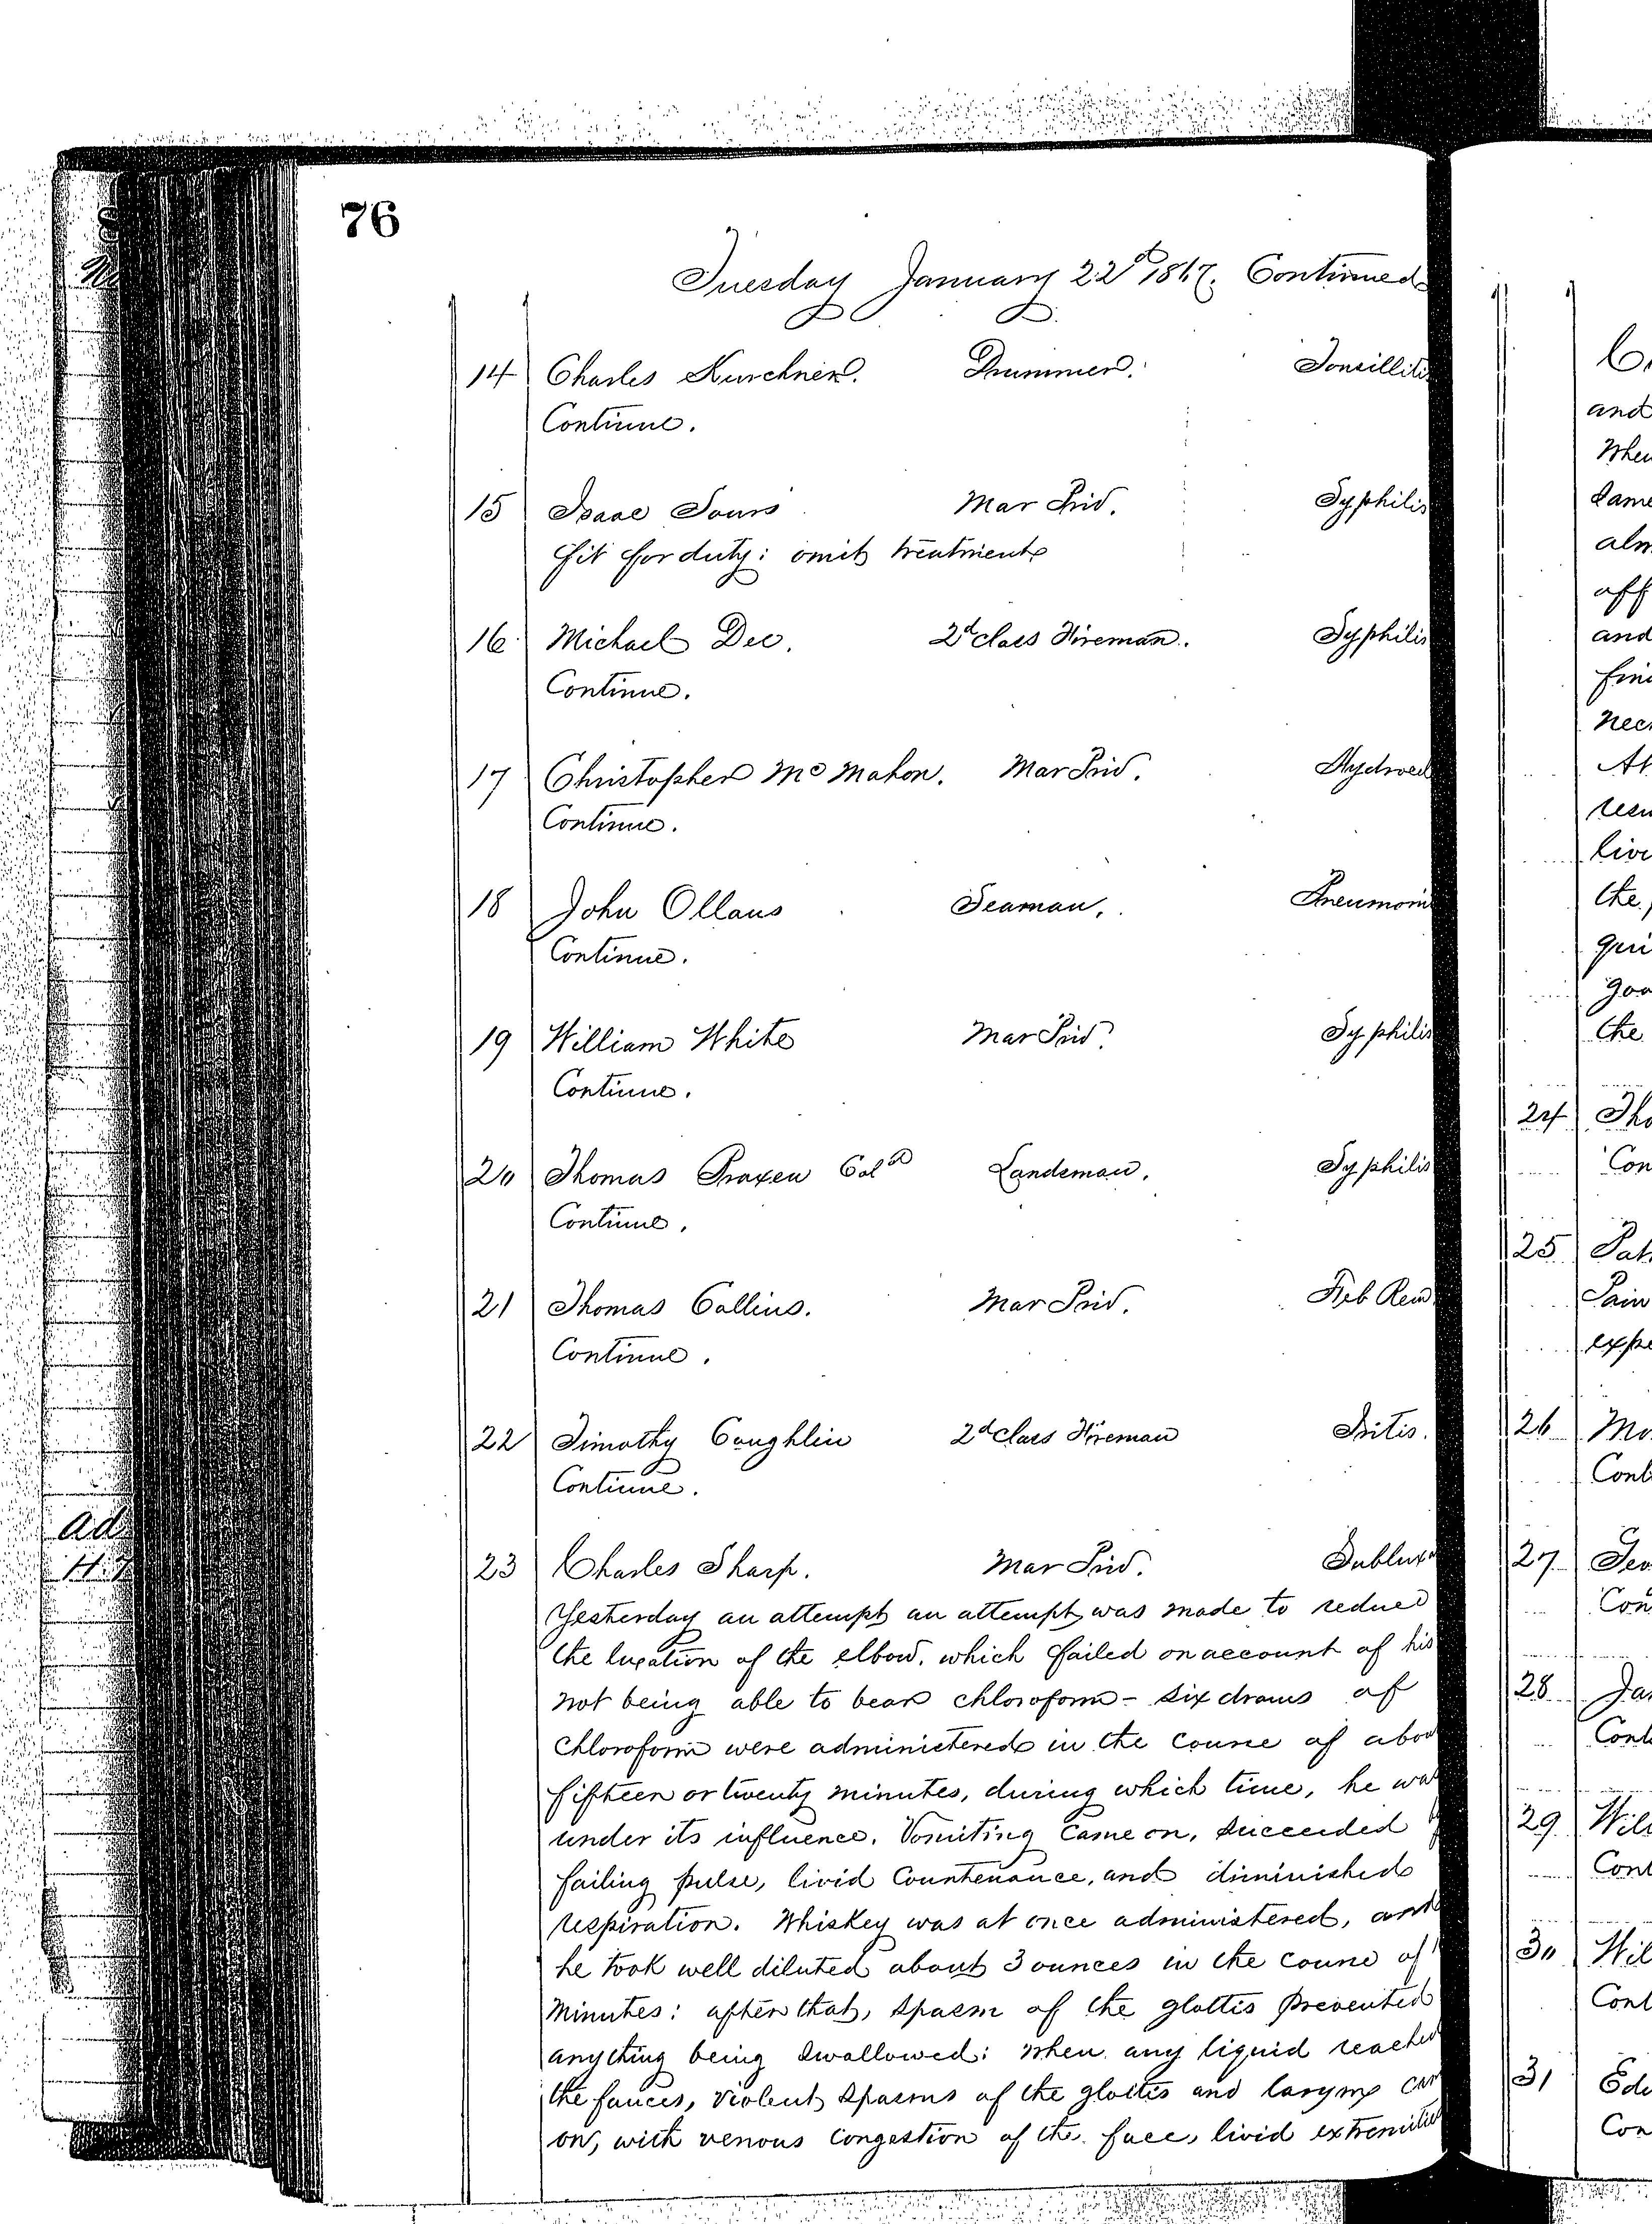 76
Tuesday January 22d 1867. Continued
14 Charles Kurchner. Drummer. Tonsillitis
Continue.
15 Isaac Sours Mar Prid. Syphilis
fit for duty: omit treatment
16 Michael Dee. 2d class Fireman. Syphilis
Continue.
17 Christopher Mc Mahon. Mar Prid. Hydrocel
Continue.
18 John Ollaus Seaman. Pneumoni
Continue.
19 William White Mar Prid. Syphilis
Continue.
20 Thomas Praxen Cold Landsman. Syphilis
Continue.
21 Thomas Collins. Mar Prid. Feb Rem
Continue.
22 Timothy Coughlin 2d class Fireman Iritis.
Continue.
23 Charles Sharp. Mar Prid. Sublux
Yesterday an attempt an attempt was made to reduce
the luxation of the elbow, which failed on account of his
not being able to bear chloroform - six drams of
Chloroform were administered in the course of abou
fifteen or twenty minutes, during which time, he was
under its influence. Vomiting came on, succeeded
failing pulse, livid countenance, and diminished
respiration. Whiskey was at once administered, and
he took well diluted about 3 ounces in the course of
minutes: after that, spasm of the glottis prevented
anything being swallowed: when any liquid reached
the fauces, violent spasms of the glottis and larynx cam
on, with venous congestion of the face, livid extremities
and
Whe
Same
alm
aff
and
fin
nec
At
resu
livi
the
qui
goo
the
24 Tho
Con
25 Pat
Pain
expe
26 Mo
Cont
27 Geo
Con
28 Ja
Cont
29 Wil
Cont
30 Wil
Cont
31 Edw
Con
Ad